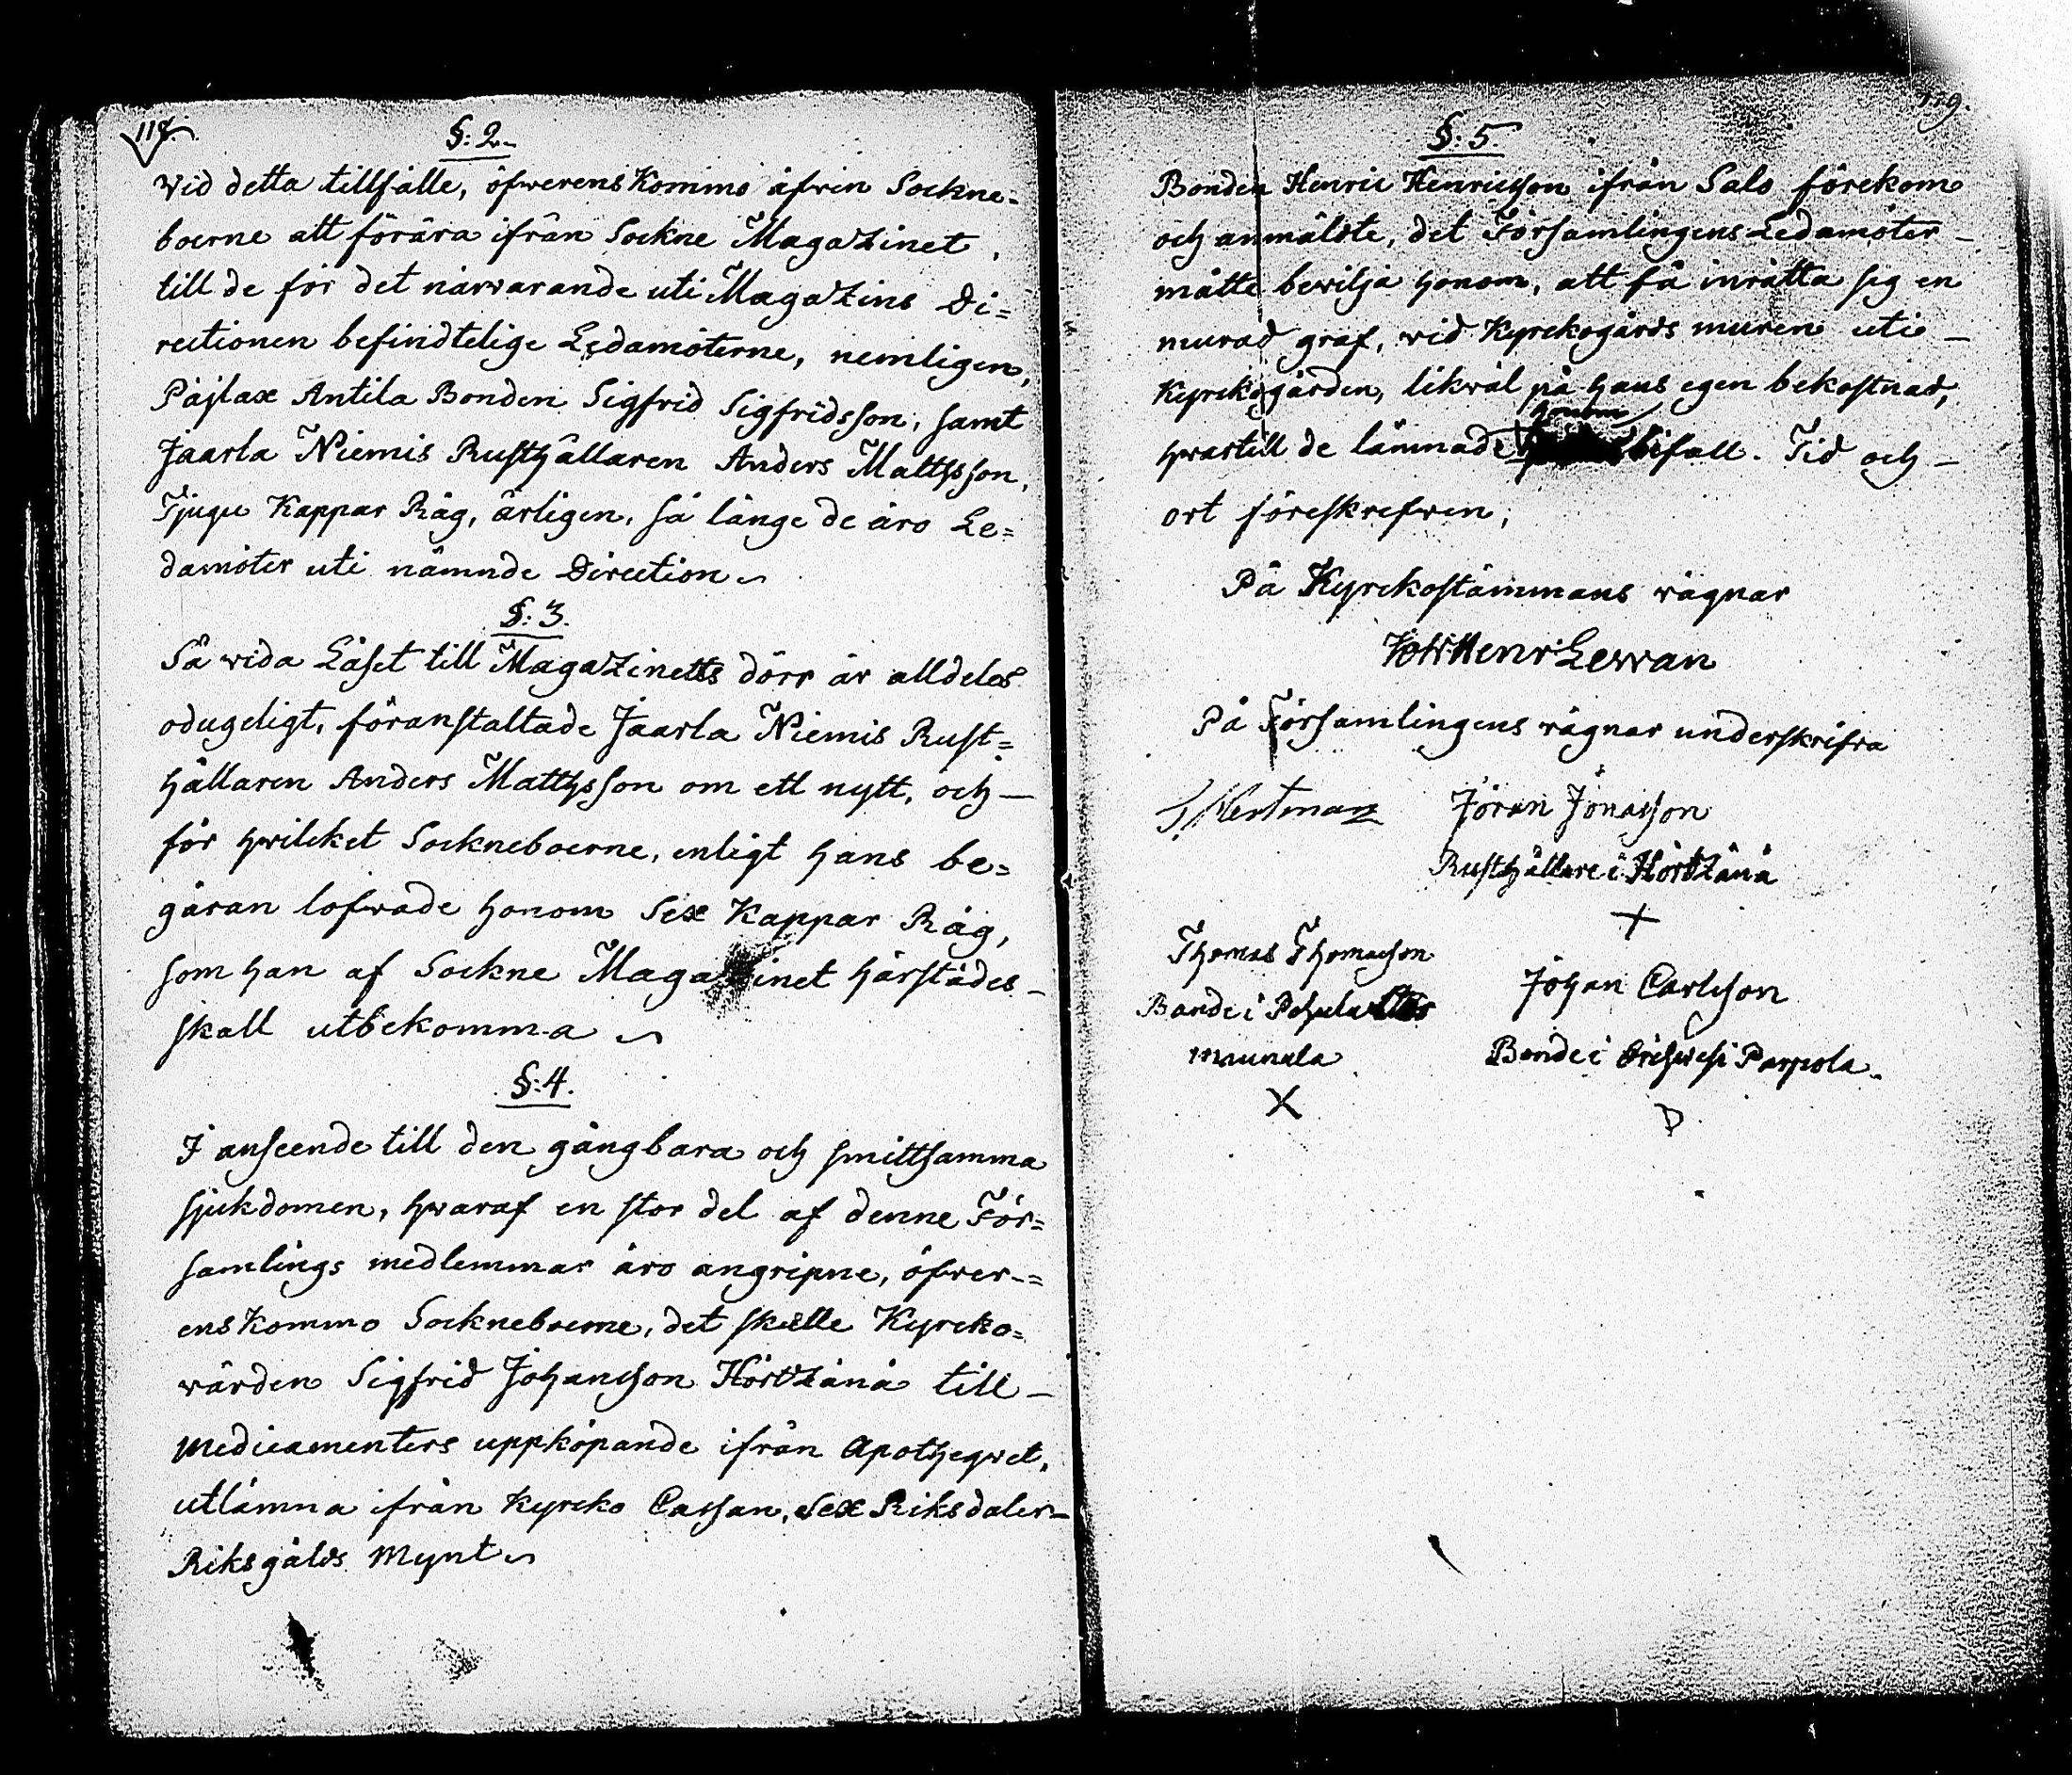 §: 2.
Vid detta tillfälle, öfwerens Kommo äfwen Sockne=
boerne att förära ifrån Sockne Magazinet,
till de för det närwarande uti Magazins Di=
rectionen befindtelige Ledamöterne, nemligen,
Påjlax Antila Bonden Sigfrid Sigfridsson, samt
Jaarla Niemis Rusthållaren Anders Mattsson,
Tjugu Kappar Råg, årligen, så länge de äro Le=
damöter uti nämnde Direction
§: 3.
Så vida Låset till Magazinets dörr är alldeles
odugeligt, föranstaltade Jaarla Niemis Rust=
hållaren Anders Mattsson om ett nytt, och
för hwilcket Sockneboerne, enligt hans be=
gäran lofwade honom Sex Kappar Råg,
som han af Sockne Magazinet härstädes
skall utbekomma
§: 4.
I anseende till den gångbara och smittsamma
sjukdomen, hwaraf en stor del af denne För=
samlings medlemmar äro angripne, öfwer=
enskommo Sockneboerne, det skulle Kyrcko=
värden Sigfrid Johansson Hörtzänä till
Medicamenters uppköpande ifrån Apotheqvet,
utlämna ifrån Kyrcko Cassan, Sex Riksdaler
Riksgälds Mynt
119.
§: 5
Bonden Henric Henricsson ifrån Salo förekom
och anmälte, det Församlingens Ledamöter
måtte bevilja honom, att få inrätta sig en
murad graf, vid Kyrckogårds muren uti
Kyrckogården, likväl på hans egen bekostnad,
hwartill de lämnade honom bifall. Tid och
ort föreskrefwen,
På Kyrckostämmans vägnar
Henr Levvan
På Församlingens vägnar underskrifva
Westman Jöran Jonasson
Rusthållare i Hörtzänä
+
Thomas Thomasson
Bonde i Pohjola
Maunula
X
Johan Carlsson
Bonde i Orisuo Parpola
D